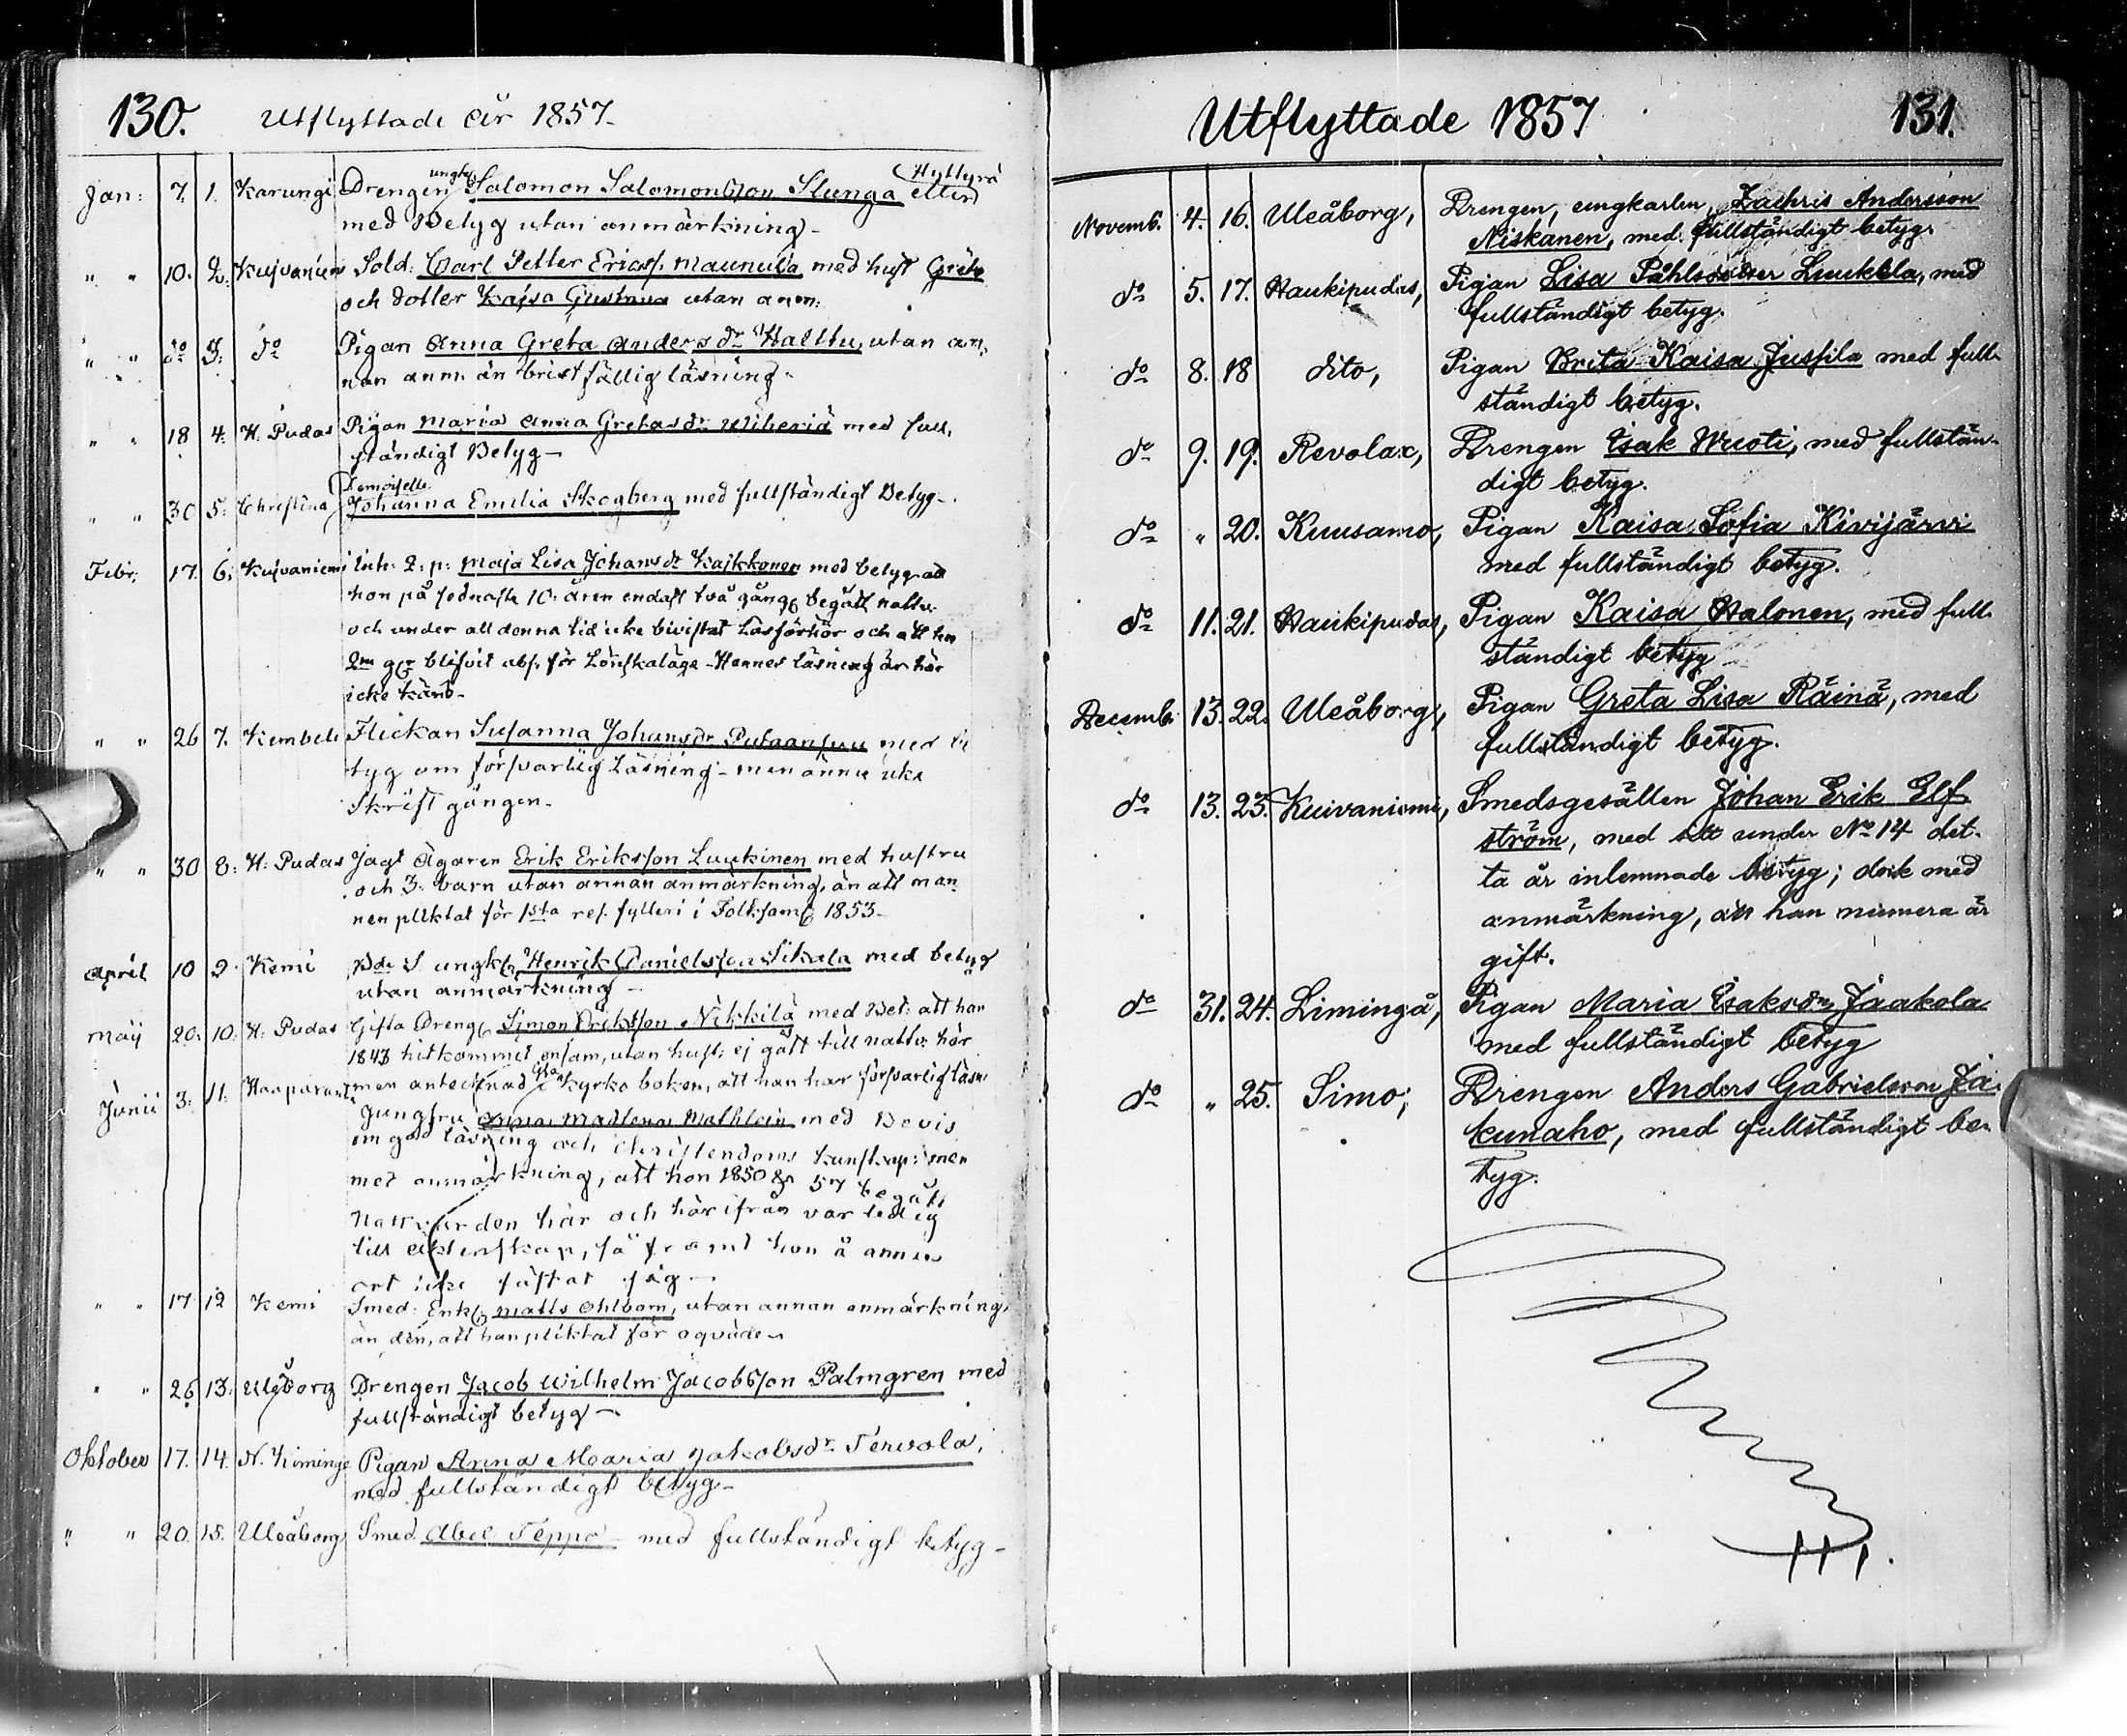 130. Utflyttade år 1857.
Jan: 7. 1. Karungi Drengen ungk. Salomon Salomonsson Slunga eller Hyttyrä
med Betyg utan anmärkning –
" " 10. 2. Kuivaniem Sold. Carl Petter Ericss. Maunula med hust. Greta
och dotter Kajsa Gustava utan anm:
" " do 3. do Pigan Anna Greta Anders dr Halttu, utan an-
nan anm. än bristfällig läsning.
" " 18 4. H. Pudas Pigan Maria Anna Gretas dr Wiheriä med full-
ständigt Betyg –
" " 30 5. Christina Demoiselle Johanna Emilia Skogberg med fullständigt Betyg –
Febr. 17. 6. Kuivaniemi Inh. Q. p. Maja Lisa Johans dr Kajkkonen med betyg att
hon på sednaste 10. åren endast två gång. begått nattv.
och under all denna tid icke bivistat Läsförhör och att hon
2m ggr blifvit abs. för Lönskaläge – Hennes läsning är här
icke känd –
" " 26 7. Kembele Flickan Susanna Johans dr Putaansuu med be
tyg om försvarlig Läsning – men ännu icke
Skrift gången –
" " 30 8. H. Pudas Jagt Ägaren Erik Eriksson Luukinen med hustru
och 3. barn utan annan anmärkning, än att man
nen pliktat för 1sta res. fylleri i Folksaml. 1853 –
April 10 9. Kemi Bde S. ungk. Henrik Danielsson Sikala med betyg
utan anmärkning –
Maij 20. 10. H. Pudas Gifta Dreng. Simon Eriksson Nikkilä med Bet: att han
1843 hitkommit ensam, utan hust. ej gått till nattv. här
men antecknad i Kyrko boken, att han har försvarlig läsn.
Junii 3. 11. Haaparanta Jungfru Anna Madlena Mathlein med Bevis
om god läsning och Christendoms kunskap: men
med anmärkning, att hon 1850 & 57 begått
Nattvarden här och härifrån var ledig
till äktenskap, så framt hon å annan
ort icke fästat sig –
" " 17 12 Kemi Smed: Enkl. Matts Ohlbom, utan annan anmärkning
än den, att han pliktat för oqväde –
" " 26 13. Uleåborg Drengen Jacob Wilhelm Jacobsson Palmgren med
fullständigt betyg –
Oktober 17. 14. N. Kiminge Pigan Anna Maria Jakobsdr Tervola,
med fullständigt betyg –
" " 20. 15. Uleåborg Smed Abel Teppo med fullständigt betyg –
Utflyttade 1857. 131.
Novemb. 4. 16. Uleåborg, Drengen, ungkarlen, Zachris Andersson
Niskanen, med fullständigt betyg.
do 5. 17. Haukipudas, Pigan Lisa Påhlsdotter Luukkela, med
fullständigt betyg.
do 8. 18 dito, Pigan Brita Kaisa Jussila med full-
ständigt betyg.
do 9. 19. Revolax, Drengen Isak Wuoti, med fullstän-
digt betyg.
do " 20. Kuusamo, Pigan Kaisa Sofia Kivijärvi
med fullständigt betyg.
do 11. 21. Haukipudas, Pigan Kaisa Halonen, med full-
ständigt betyg
Decemb. 13. 22. Uleåborg, Pigan Greta Lisa Räinä, med
fullständigt betyg.
do 13. 23. Kuivaniemi, Smedsgesällen Johan Erik Elf
ström, med sitt under No 14 det-
ta år inlemnade betyg; dock med
anmärkning, att han numera är
gift.
do 31. 24. Limingå, Pigan Maria Isaksdr Jaakola
med fullständigt betyg
do " 25. Simo; Drengen Anders Gabrielsson Jä-
kunaho, med fullständigt be-
tyg.